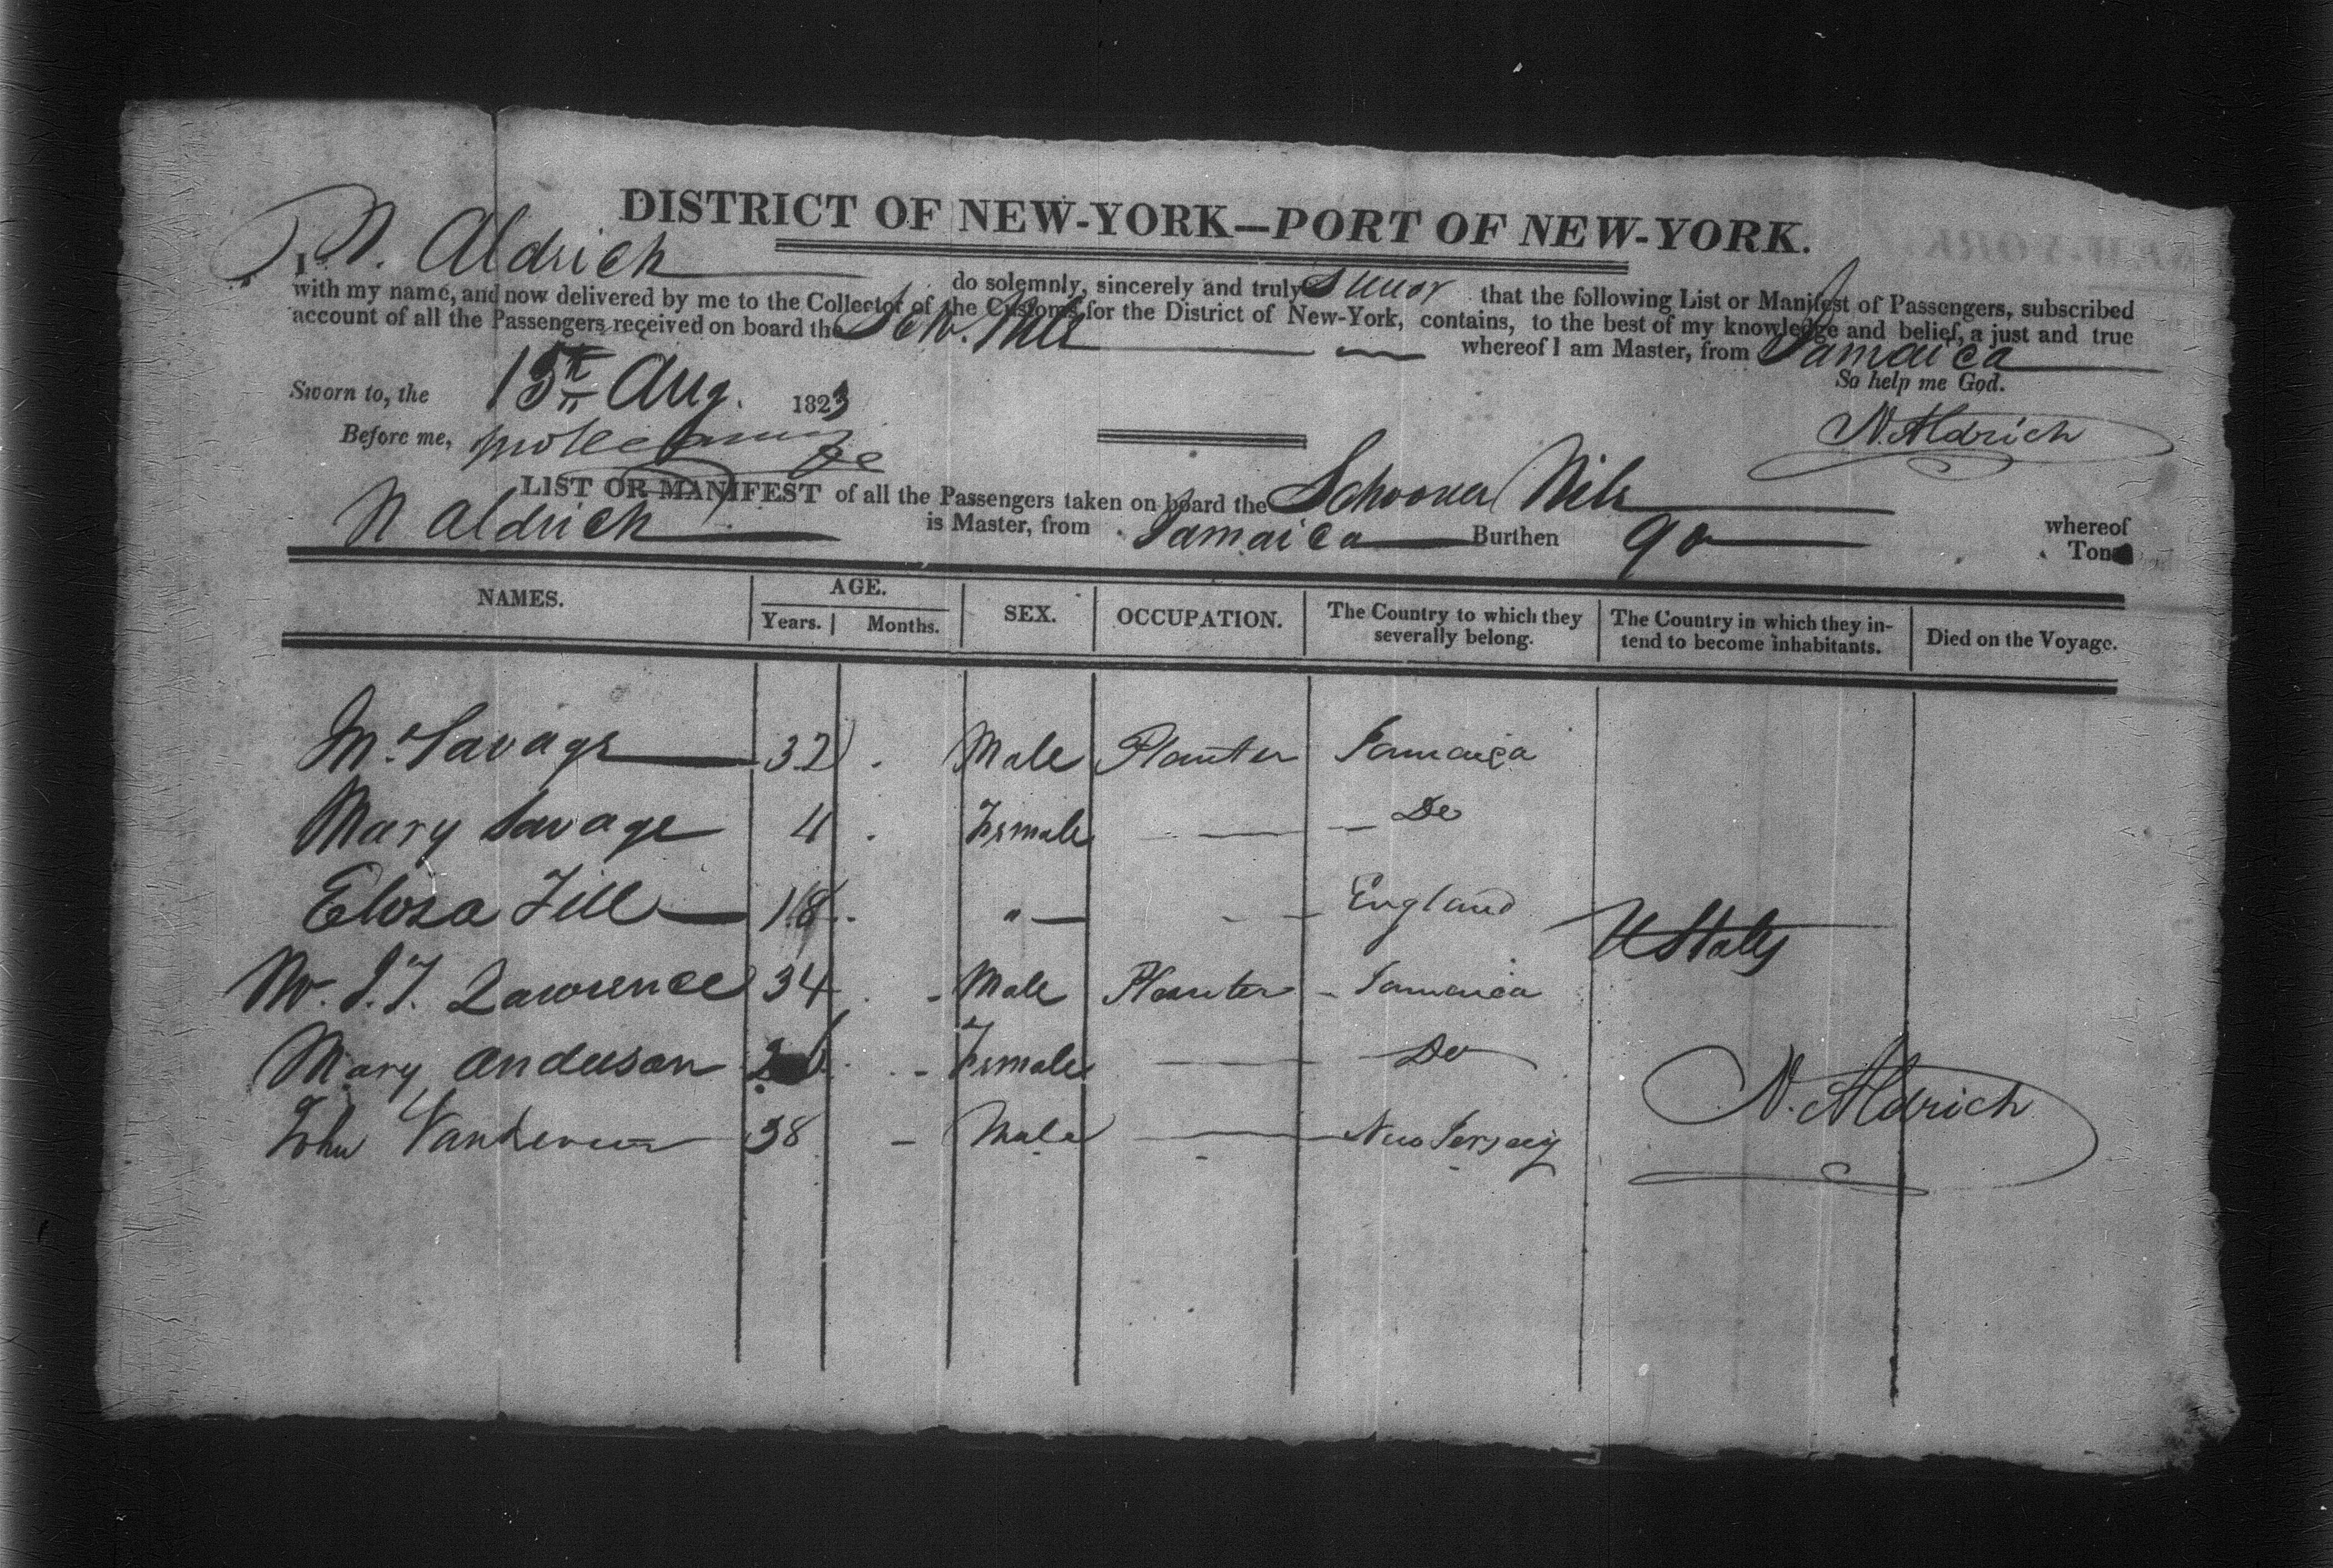 DISTRICT OF NEW-YORK—PORT OF NEW-YORK.
I N. Aldrich do solemnly, sincerely and truly swear that the following List or Manifest of Passengers, subscribed
with my name, and now delivered by me to the Collector of the Customs for the District of New-York, contains, to the best of my knowledge and belief, a just and true
account of all the Passengers received on board the Schr. Nile whereof I am Master, from Jamaica
So help me God.
Sworn to, the 15th Aug. 1823
N. Aldrich
Before me,
LIST OR MANIFEST of all the Passengers taken on board the Schooner Nile whereof
N Aldrich is Master, from Jamaica Burthen 90 Tons
NAMES. AGE. SEX. OCCUPATION. The Country to which they severally belong. The Country in which they intend to become inhabitants. Died on the Voyage.
Years. Months.
Mr Savage 32 Male Planter Jamaica
Mary Savage 4 Female — Do
Eliza Till 18 " — England
U States
Mr. J. T. Lawrence 34 Male Planter Jamaica
Mary Anderson Female — Do
John 38 Male — New Jersey
N. Aldrich